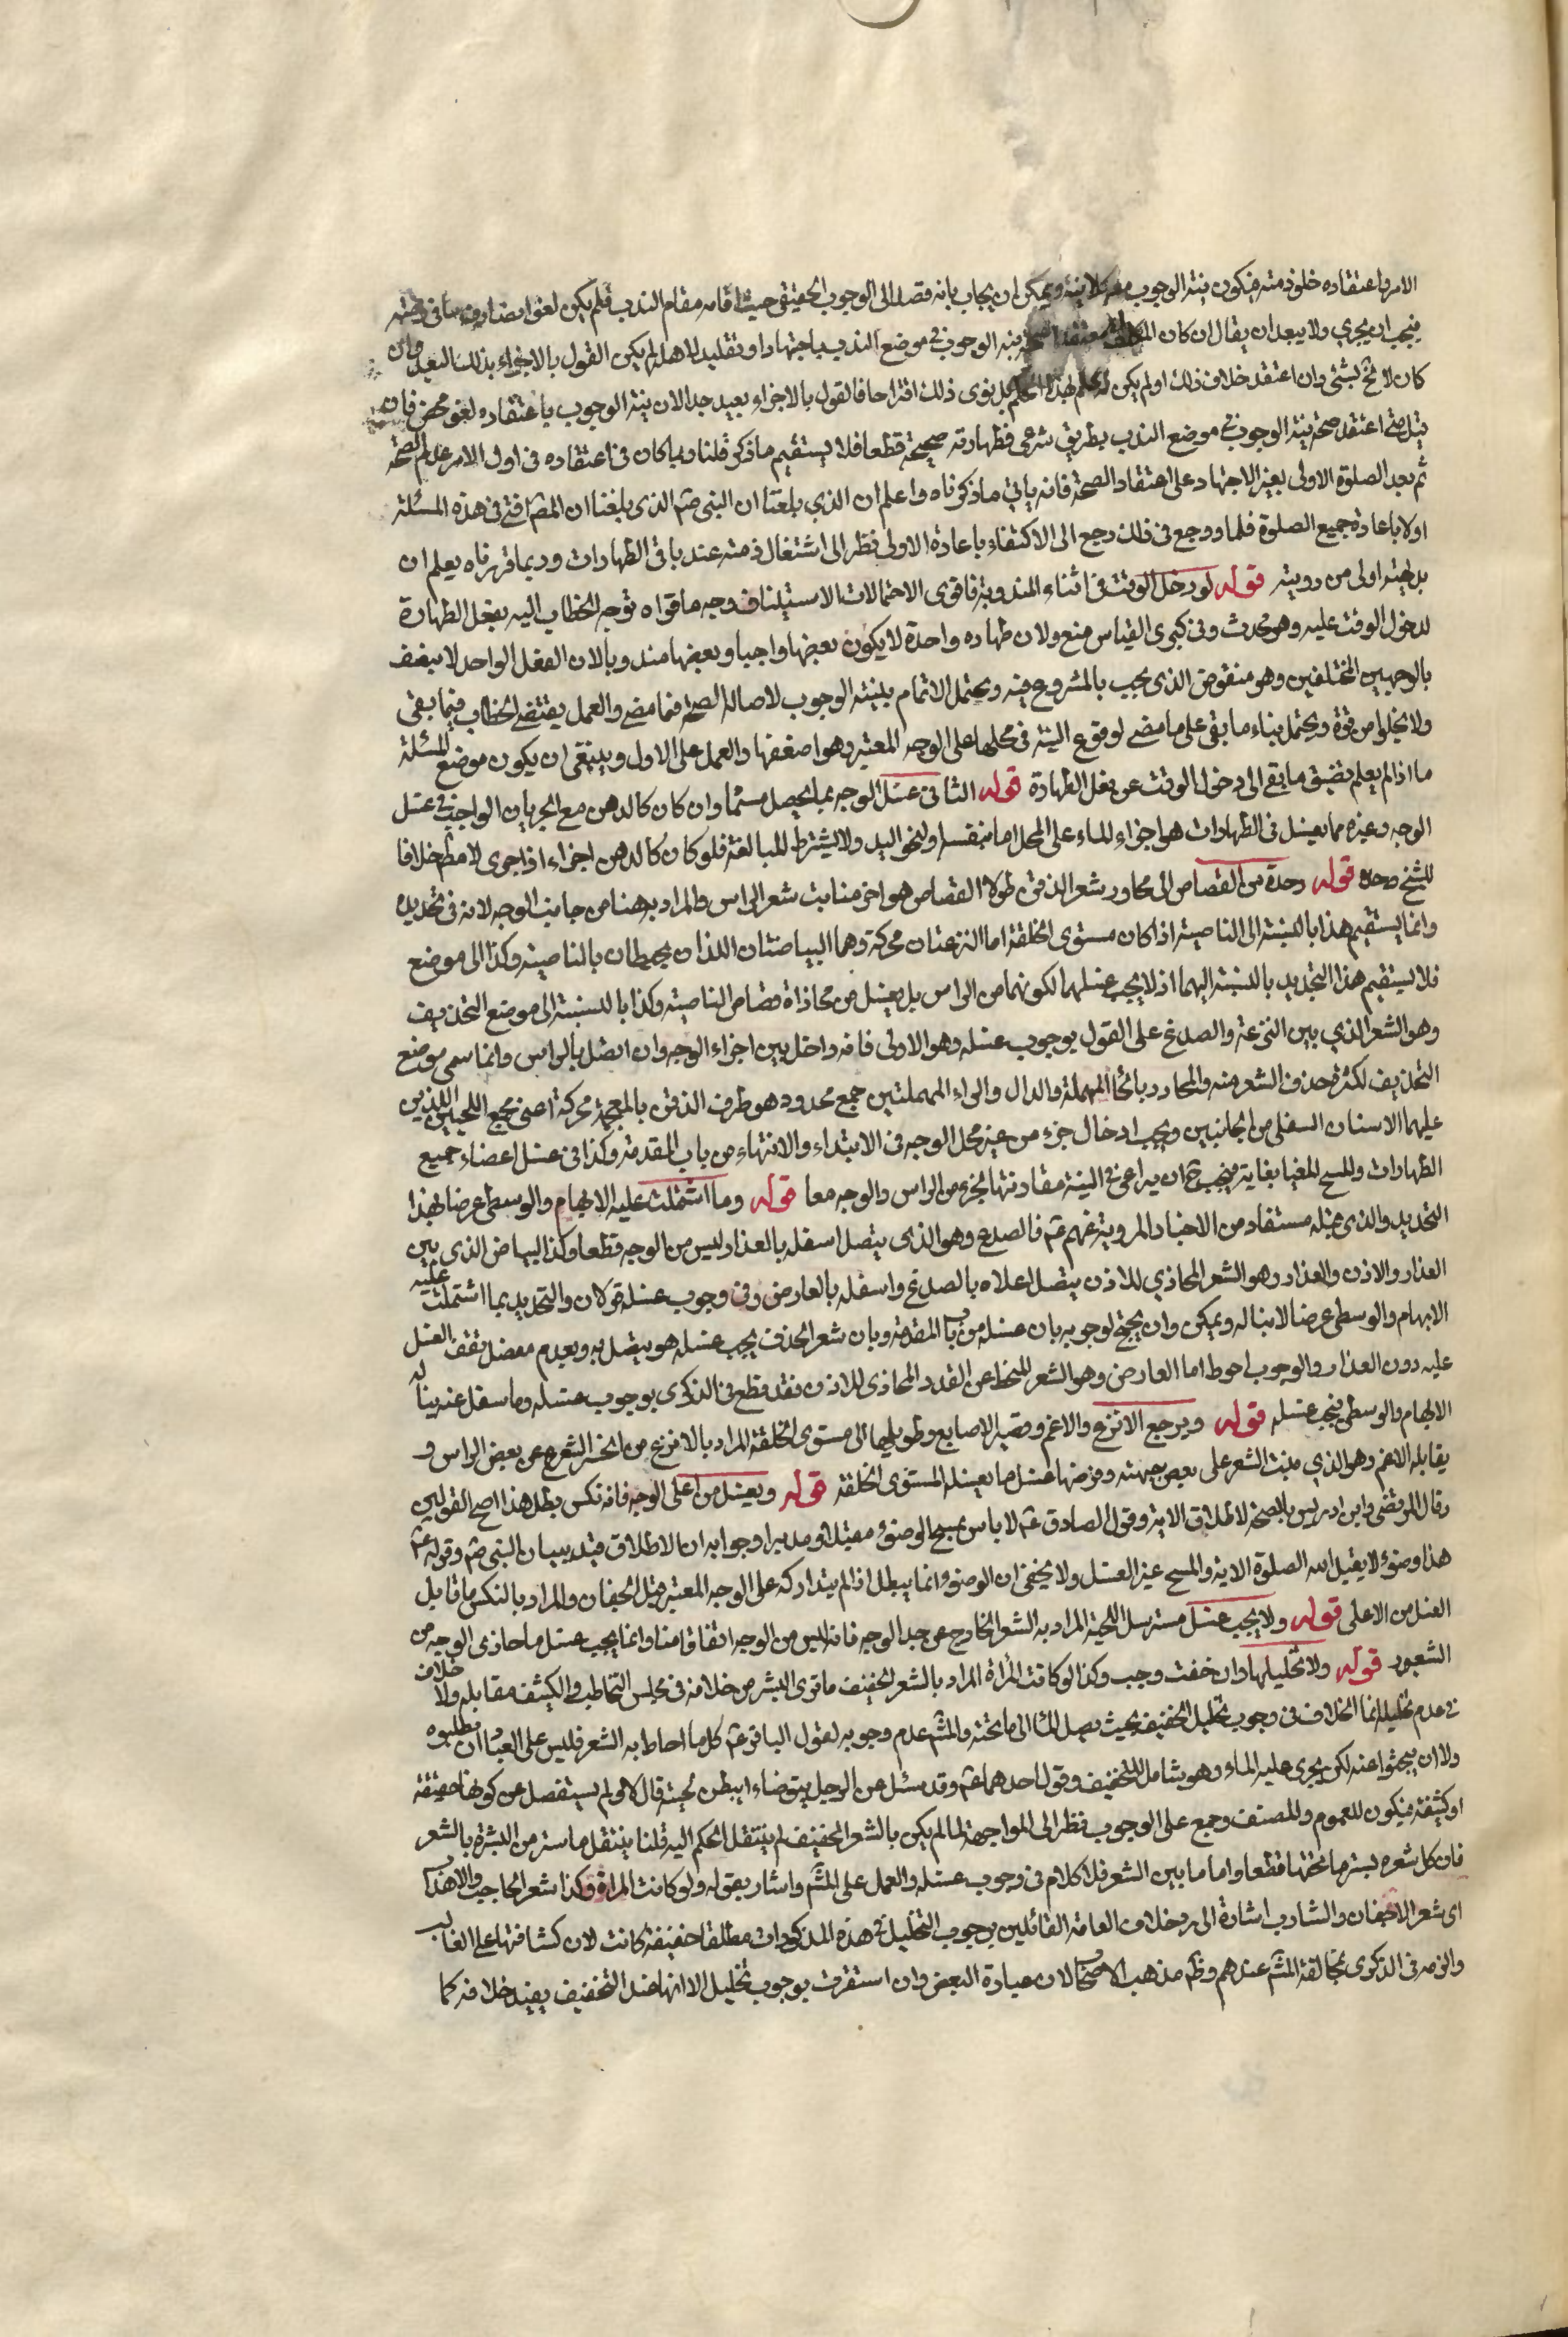 الامر باعتقاده خلو ذمته فيكون نية الوجوب معه كلا نية ويمكن ان يجاب بانه قصد الى الوجوب الحقيقى حيث اقامه مقام الندب فلم يكن لغوا فصادف ما فى ذمته
فيجب ان يجزي ولا يبعد ان يقال ان كان المكلف معتقدا صحة نية الوجوب فى موضع الندب باجتهاد او تقليد لاهله لم يكن القول بالاجزاء بذلك البعيد وان
كان لا يخ بشئ وان اعتقد خلاف ذلك او لم يكن له علم بهذا الحكم بل نوى ذلك اقتراحا فالقول بالاجزاء بعيد جدا لان نية الوجوب باعتقاده لغو محض فان
قيل متى اعتقد صحة نية الوجوب فى موضع الندب بطريق شرعى فطهارته صحيحة قطعا فلا يستقيم ما ذكر قلنا ربما كان فى اعتقاده فى اول الامر عدم الصحة
ثم بعد الصلوة الاولى بغير الاجتهاد على اعتقاد الصحة فانه ياتى ما ذكرناه واعلم ان الذي بلغنا ان النبى صم الذى بلغنا ان المصم افتى فى هذه المسئلة
اولا باعادة جميع الصلوة فلما روجع فى ذلك رجع الى الاكتفاء باعادة الاولى نظر الى اشتغال ذمته عند باقى الطهارات وربما قررناه يعلم ان
بدايته اولى من رويته قوله لو دخل الوقت فى اثناء المندوبة فاقوى الاحتمالات الاستيناف وجه ما قواه توجه الخطاب اليه بفعل الطهارة
لدخول الوقت عليه وهو محدث وفى كبرى القياس منع ولان طهاره واحدة لا يكون بعضها واجبا وبعضها مندوبا لان الفعل الواحد لا يتصف
بالوجهين المختلفين وهو منقوض الذى يجب بالشروع فيه ويحتمل الاتمام بلنية الوجوب لاصالة الصحة فيما مضى والعمل بمقتضى الخطاب فيما بقى
ولا يخلوا من قوة ويحتمل بناء ما بقى على ما مضى لوقوع النية فى محلها على الوجه المعتبر وهو اضعفها والعمل على الاول وينبغى ان يكون موضع المسئلة
ما اذا لم يعلم بضيق ما بقى الى دخول الوقت عن فعل الطهارة قوله الثانى غسل الوجه بما يحصل مسماه وان كان كالدهن مع الجريان الواجب فى غسل
الوجه وغيره مما يغسل فى الطهارات هو اجراء الماء على المحل اما بنفسه او بنحو اليد ولا يشترط المبالغة فلو كان كالدهن اجزاء اذا جرى لا مطم خلافا
للشيخ رحمه قوله وحده من القصاص الى محاور شعر الذقن طولا القصاص هو اخر منابت شعر الراس والمراد به هنا من جانب الوجه لانه فى تحديده
وانما يستقيم هذا بالنسبة الى الناصية اذا كان مستوى الخلقة اما النزعتان محركة وهما البياضتان اللذان يحيطان بالناصية وكذا الى موضع
فلا يستقيم هذا التحديد بالنسبة اليهما اذ لا يجب غسلهما لكونهما من الراس بل يغسل من محاذاة قصاص الناصية وكذا بالنسبة الى موضع التحذيف
وهو الشعر الذي بين النزعة والصدغ على القول بوجوب غسله وهو الاولى فانه داخل بين اجزاء الوجه وان اتصل بالراس وانما سمى موضع
التحذيف لكثرة حذف الشعر منه والمحادر بالحا المهملة والدال والراء المهملتين جمع محدود هو طرف الذقن بالمعجمة محركة اعنى مجمع اللحيين اللذين
عليهما الاسنان السفلى من الجانبين ويجب ادخال جزء من غير محل الوجه فى الابتداء والانتهاء من باب المقدمة وكذا فى غسل اعضاء جميع
الطهارات والمسح المغيا بغاية فيجب ح ان يراعى فى النية مقارنتها لجزء من الراس والوجه معا قوله وما اشتملت عليه الابهام والوسطى عرضا هذا
التحديد والذى قبله مستفاد من الاخبار المروية عنهم عم فالصدع وهو الذى يتصل اسفله بالعذار وليس من الوجه قطعا وكذا البياض الذى بين
العذار والاذن والعذار وهو الشعر المحاذي للاذن يتصل اعلاه بالصدغ واسفله بالعارض وفى وجوب غسله قولان والتحديد بما اشتملت عليه
الابهام والوسطى عرضا لا يناله ويمكن وان يحتج لوجوبه بان غسله من باب المقدمة وبان شعر الحذف يجب غسله هو يتصل به وبعدم مفصل يقف الغسل
عليه دون العذار والوجوب احوط اما العارض وهو الشعر المنحط عن القدر المحاذى للاذن فقد قطع فى الذكرى بوجوب غسله وما سفل عنه يناله
الابهام والوسطى فيجب غسله قوله ويرجع الانزع والاغم وقصير الاصابع وطويلها الى مستوى الخلقة المراد بالانزع من انحسر الشعر عن بعض الراس و
يقابله الاغم وهو الذي ينبت الشعر على بعض جبهته وفرضها غسل ما يغسله المستوى الخلقة قوله ويغسل من اعلى الوجه فانه نكس بطل هذا اصح القولين
وقال المرتضى وابن ادريس بالصحة لاطلاق الاية وقول الصادق عم لا باس بمسح الوضوء مقبلا ومدبرا وجوابه ان الاطلاق قيد ببيان النبى صم وقوله عم
هذا وضوء لا يقبل الله الصلوة الا به والمسح غير الغسل ولا يخفى ان الوضوء انما يبطل اذا لم يتداركه على الوجه المعتبر قبل الجفاف والمراد بالنكس ما قابل
الغسل من الاعلى قوله ولا يجب غسل مسترسل اللحية المراد به الشعر الخارج عن حد الوجه فانه ليس من الوجه اتفاقا منا وانما يجب غسل ما حاذى الوجه من
الشعور قوله ولا تخليلها وان خفت وجب وكذا لو كانت المرأة المراد بالشعر الخفيف ما ترى البشر من خلاله فى مجلس التخاطب والكثيف مقابله ولا خلاف
فى عدم تخليله انما الخلاف فى وجوب تخليل الخفيف بحيث يصل الماء الى ما تحته والمشم عدم وجوبه لقول الباقر عم كل ما احاط به الشعر فليس على العباد ان يطلبوه
ولا ان يبحثوا عنه لكن يجرى عليه الماء وهو شامل للخفيف وقول احدهما عم وقد سئل عن الرجل يتوضاء ايبطن لحيته قال لا ولم يستفصل عن كونها خفيفة
او كثيفة فيكون للعموم وللمصنف وجمع على الوجوب نظر الى المواجهة لما لم يكن بالشعر الخفيف لم ينتقل الحكم اليه قلنا ينتقل ما ستر من البشرة بالشعر
فان كل شعره يستر ما تحتها قطعا واما ما بين الشعر فلا كلام فى وجوب غسله والعمل على المشم واشار بقوله ولو كانت المراة وكذا شعر الحاجب والاهداب
اى شعر الاجفان والشارب اشارة الى رد خلاف العامة القائلين بوجوب التخليل فى هذه المذكورات مطلقا خفيفة كانت لان كثافتها على الغالب
والزمه فى الذكرى مخالفة المشم عندهم وظم مذهب الاصحاب لان عبارة البعض وان استقرت بوجوب تخليل الا انها عند التخفيف يفيد خلافه كما